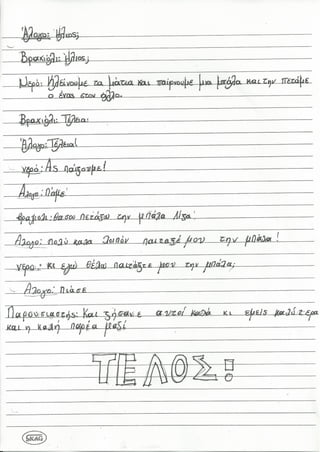 Άλογο: Ήλιος;
Βραχιόλι: Ήλιος;
Νερό: Κλείνουμε τα μάτια και παίρνουμε μια μπάλα και την πετάμε
ο ένας στον άλλο.
Βραχιόλι: Τέλεια!
Άλογο: Τέλεια!
νερό: Ας παίξουμε!
Άλογο: Πάμε!
βραχιολι: θα σου πετάξω την μπάλα Λίζα!
Άλογο: πολύ καλα λοιπόν πεταξέ μου την μπάλα!
νερο: κι εγώ θέλω πετάξτε μου την μπάλα;
Άλογο: Πιάσε
Παρουσιαστής: Και ζήσανε αυτοί καλά κι εμείς καλύτερα
και η καλή παρέα μαζί
ΤΕΛΟΣ!
SKAG